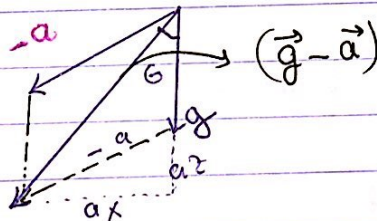 -a
(g⃗ - a⃗)
G
g
-a
az
ax